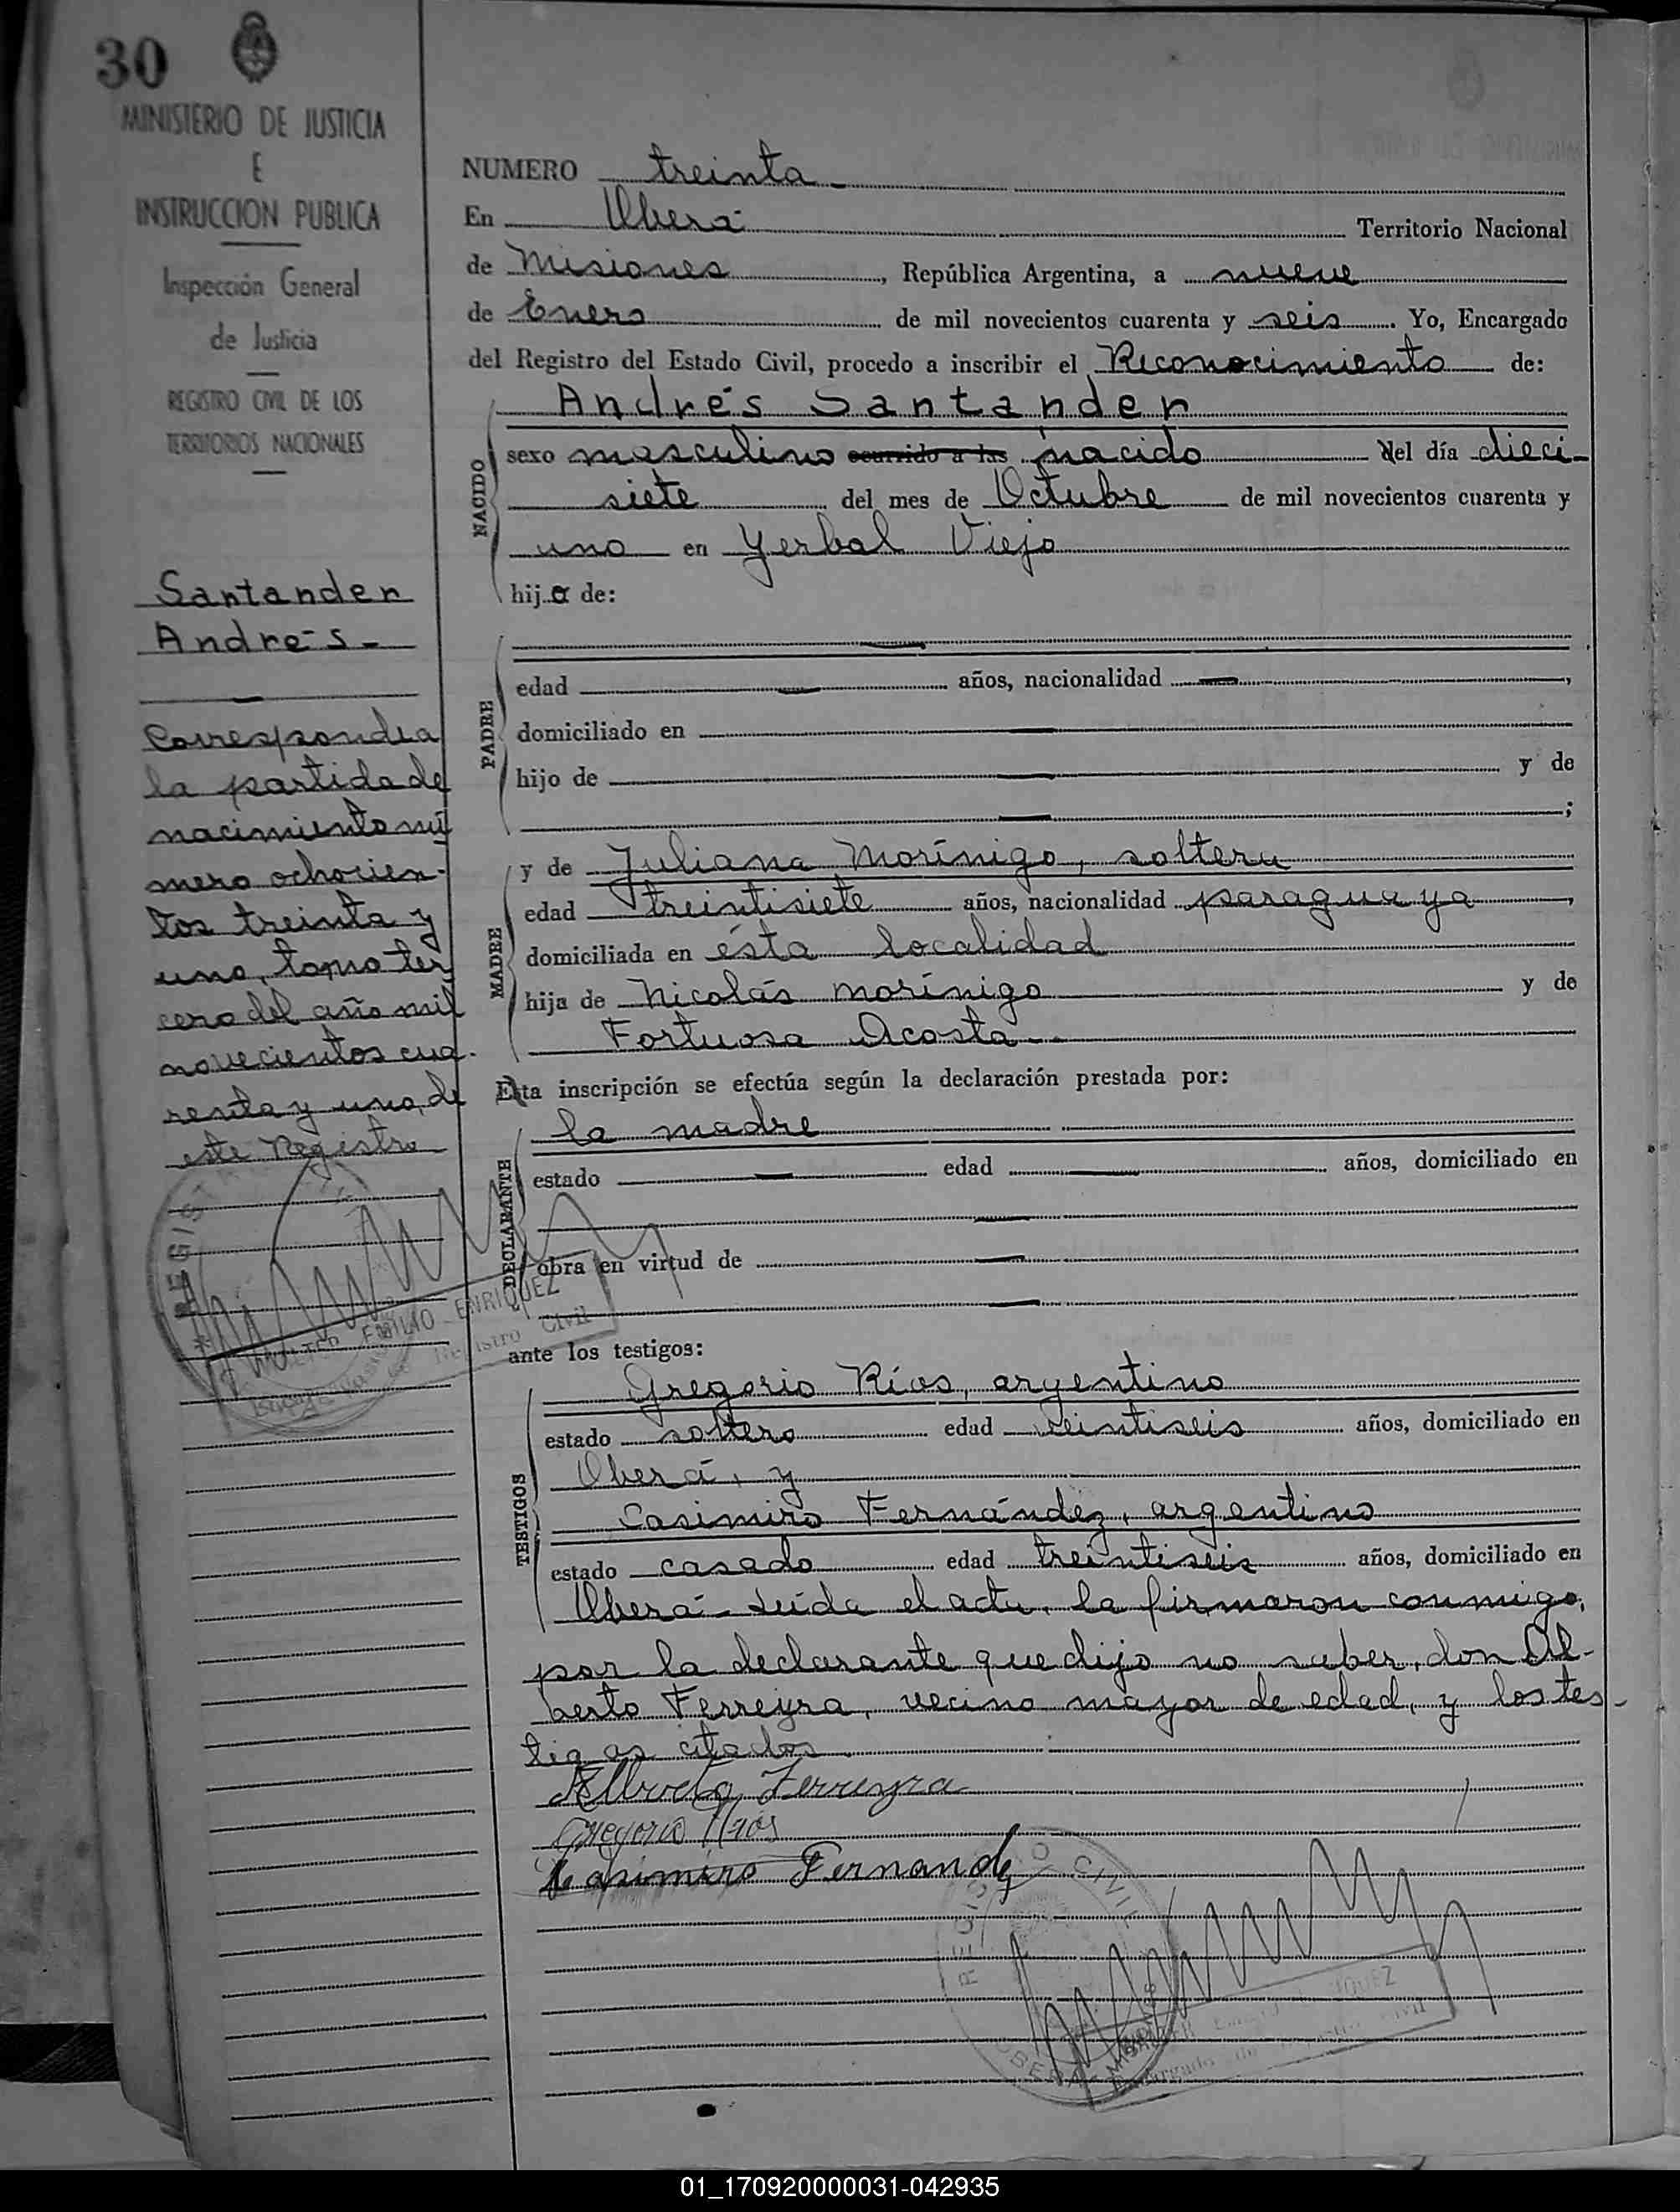 30
MINISTERIO DE JUSTICIA
E
INSTRUCCION PUBLICA
Inspección General
de Justicia
REGISTRO CIVIL DE LOS
TERRITORIOS NACIONALES
Santander
Andrés-
Corresponde a
la partida de
nacimiento nú
mero ochocien-
tos treinta y
uno, tomo ter
cero del año mil
novecientos cua-
renta y uno, de
este Registro
NUMERO treinta-
En Oberá Territorio Nacional
de Misiones, República Argentina, a nueve
de Enero de mil novecientos cuarenta y seis. Yo, Encargado
del Registro del Estado Civil, procedo a inscribir el Reconocimiento de:
NACIDO
Andrés Santander
sexo masculino ocurrido a las nacido del día dieci-
siete del mes de Octubre de mil novecientos cuarenta y
uno en Yerbal Viejo
hijo de:
PADRE
edad — años, nacionalidad —,
domiciliado en —
hijo de — y de
— ;
MADRE
y de Juliana Morínigo, soltera
edad treintisiete años, nacionalidad paraguaya,
domiciliada en ésta localidad
hija de Nicolás Morínigo y de
Fortuosa Acosta-
Esta inscripción se efectúa según la declaración prestada por:
DECLARANTE
la madre
estado — edad — años, domiciliado en
—
obra en virtud de —
—
WALTER EMILIO ENRIQUEZ
Registro Civil
ante los testigos:
TESTIGOS
Gregorio Ríos, argentino
estado soltero edad veintiseis años, domiciliado en
Oberá, y
Casimiro Fernández, argentino
estado casado edad treintiseis años, domiciliado en
Oberá- Leída el acta, la firmaron conmigo,
por la declarante que dijo no saber, don Al-
berto Ferreyra, vecino mayor de edad, y los tes-
tigos citados
Alberto Ferreyra
Gregorio Rios
Casimiro Fernandez
REGISTRO CIVIL
OBERA - MISIONES
Encargado de Registro Civil
01_170920000031-042935